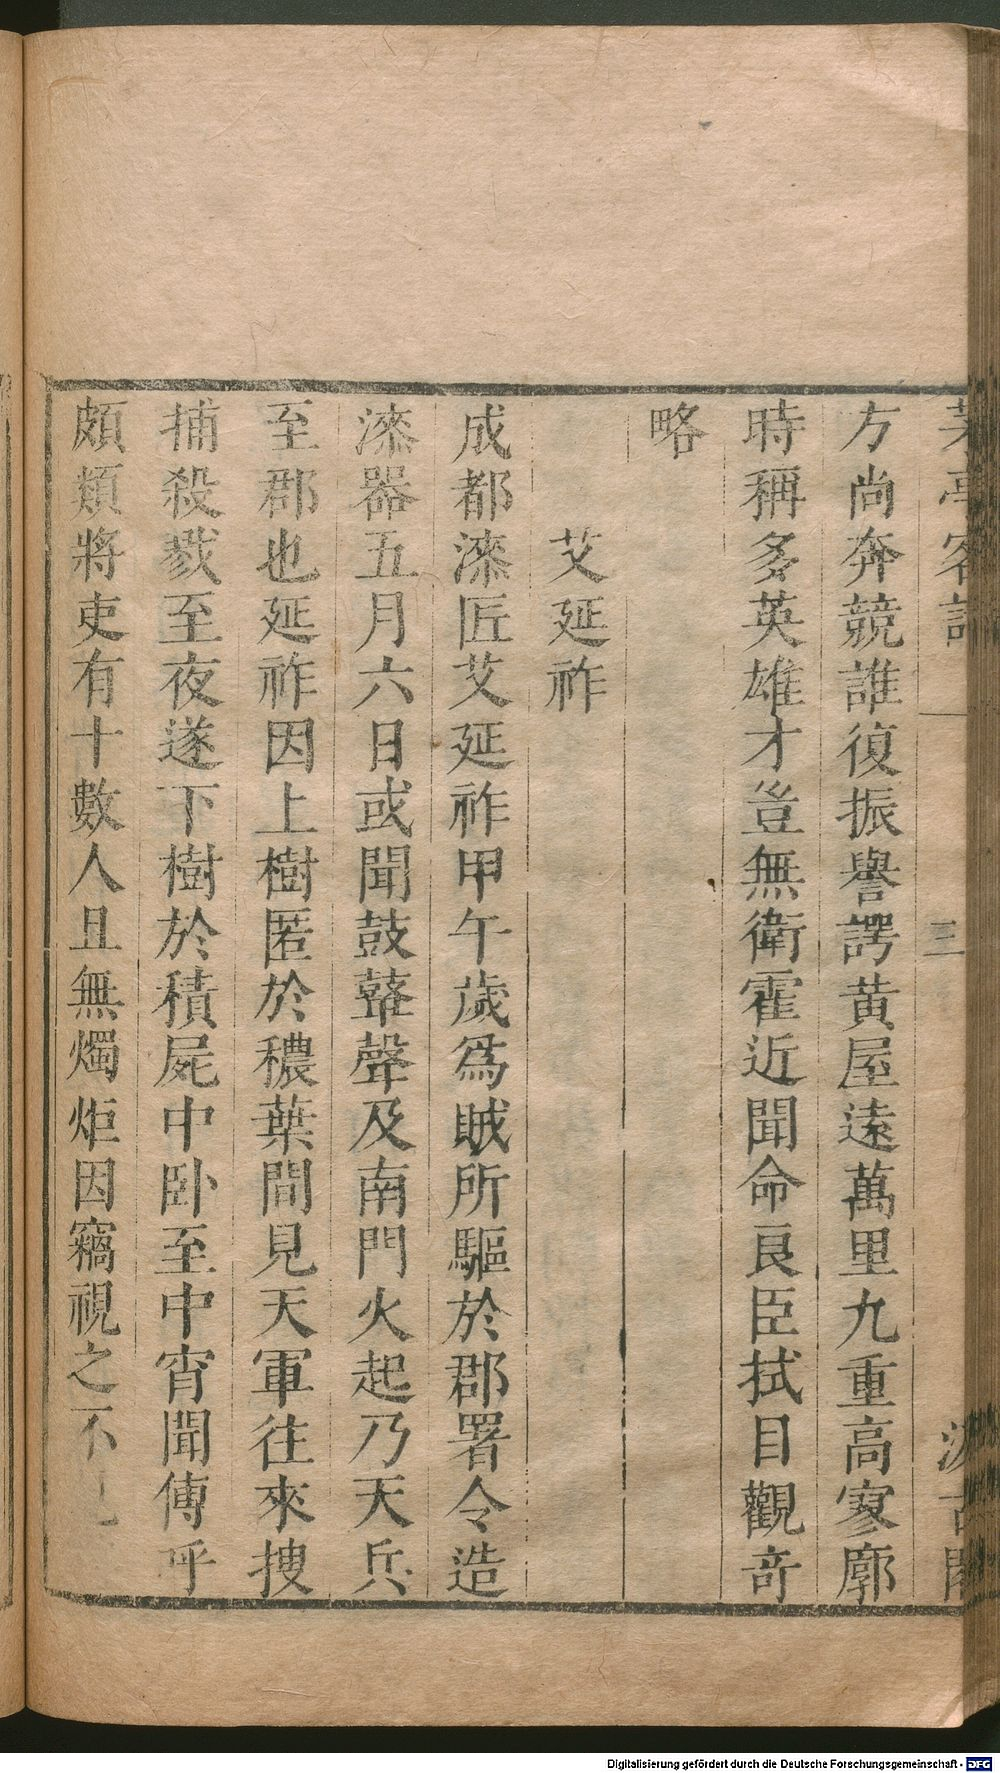 茅亭客話
三
汲古閣
方尚奔競誰復振譽諤黃屋遠萬里九重高寥廓
時稱多英雄才豈無衛霍近聞命良臣拭目觀奇
略
艾延祚
成都漆匠艾延祚甲午歲爲賊所驅於郡署令造
漆器五月六日或聞鼓鼙聲及南門火起乃天兵
至郡也延祚因上樹匿於穠葉間見天軍往來捜
捕殺戮至夜遂下樹於積屍中卧至中宵聞傳呼
頗類將吏有十數人且無燭炬因竊視之不
Digitalisierung gefördert durch die Deutsche Forschungsgemeinschaft - DFG